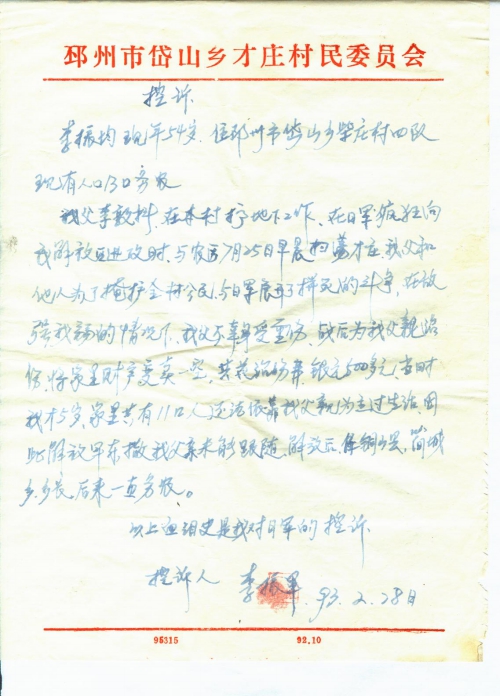 邳州市岱山乡才庄村民委员会
控诉
李振均 现年54岁. 住邳州市岱山乡柴庄村四队
现有人口 口务农
我父李敦 在本村 地下工作、在日军疯狂向
我解放区进攻时、与农历7月25日早晨扫荡才庄、我父和
他人为了掩护全村公民、与日军展开了拼死的斗争、在敌
强我弱的情况下、我父不幸身受重伤、战后为我父亲治
伤、将家里财产变卖一空、共花 银元500多元、当时
我才5岁、家里共有11口人、生活依靠我父亲为主过生活因
此解放军东撤我父亲未能跟随、解放后、任
乡、乡长、后来一直务农。
以上 史是我对日军的控诉.
控诉人 李振军. 93. 2. 28日
95315 92.10